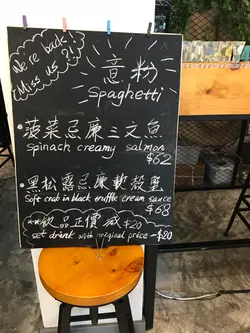 We're back
Miss us ?!
意粉
Spaghetti
菠菜忌廉三文魚
spinach creamy salmon
$62
黑松露忌廉軟殼蟹
Soft crab in black truffle cream sauce
$68
**飲品正價減$20
set drink with original price -$20